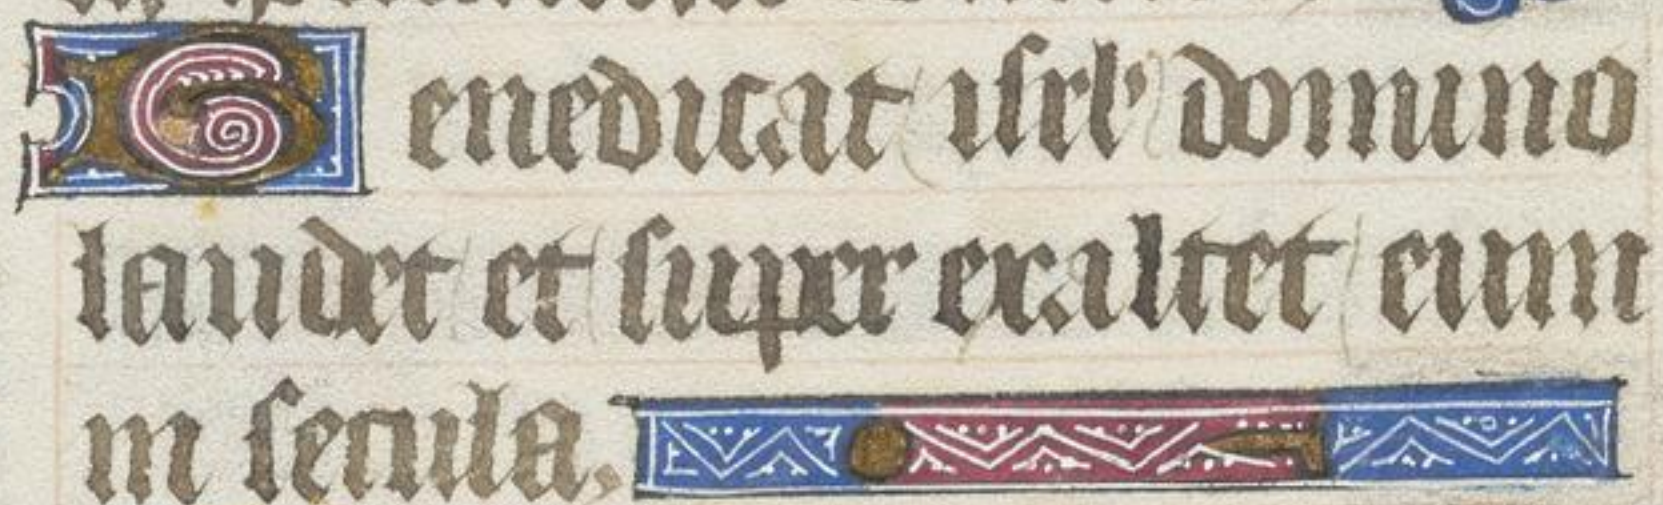 Genedicat isrl' domino
laudet et super exaltet eum
in secula.